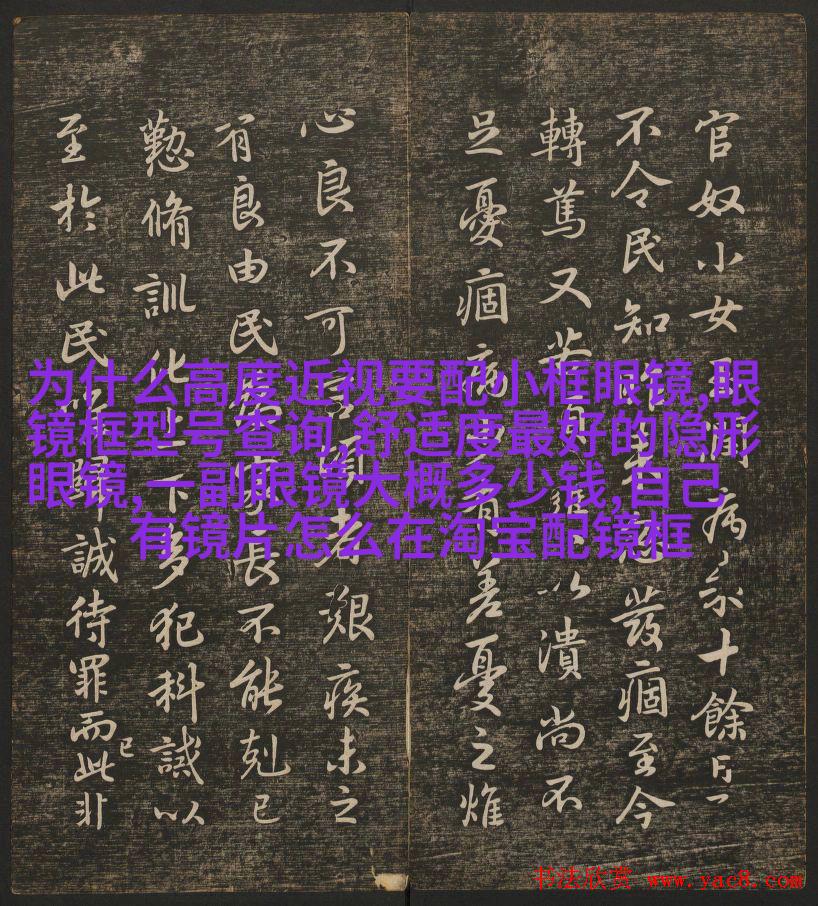 为什么高度近视要配小框眼镜,眼
镜框型号查询,舒适度最好的隐形
眼镜,一副眼镜大概多少钱,自己
有镜片怎么在淘宝配镜框
官奴小女玉潤病來十餘日
不令民知昨來忽發痼至今
轉篤又苦以潰尚不
足憂痼病少有差憂之燋
心良不可言頃者艱疾未之
有良由民為家長不能剋己
懃脩訓化上下多犯科誡以
至於此民唯歸誠待罪而此非
已
书法欣赏 www.yac8.com